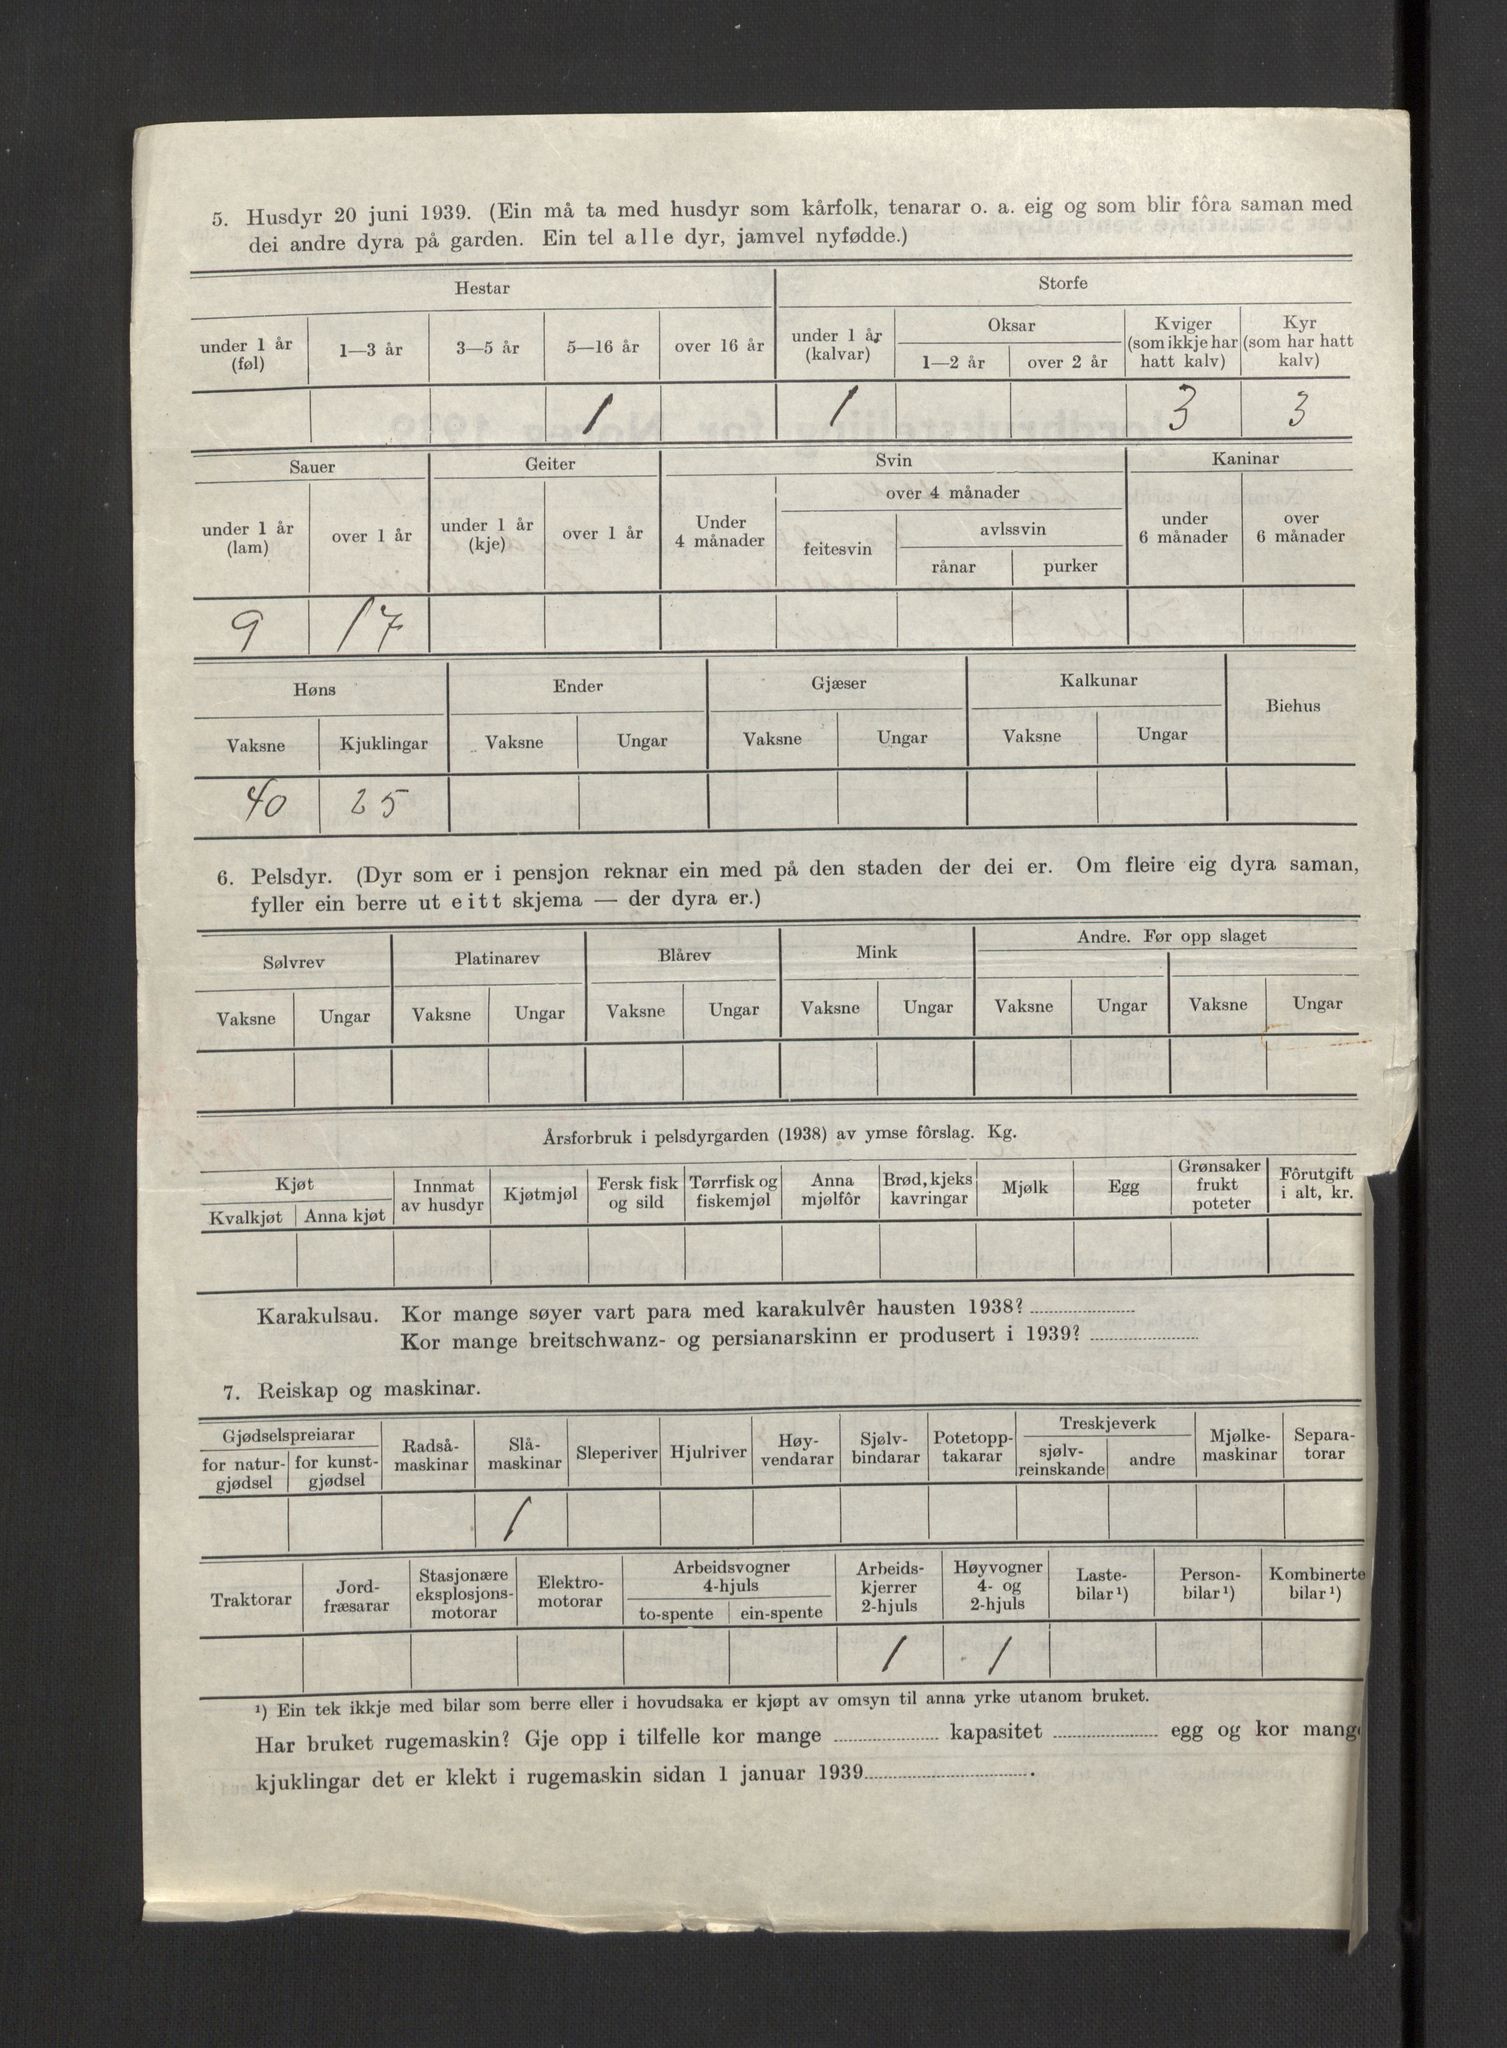 5. Husdyr 20 juni 1939. (Ein må ta med husdyr som kårfolk, tenarar o. a. eig og som blir fôra saman med
dei andre dyra på garden. Ein tel alle dyr, jamvel nyfødde.)
Hestar Storfe
under 1 år (føl) 1—3 år 3—5 år 5—16 år over 16 år under 1 år (kalvar) Oksar 1—2 år over 2 år Kviger (som ikkje har hatt kalv) Kyr (som har hatt kalv)
1 1 3 3
Sauer Geiter Svin Kaninar
under 1 år (lam) over 1 år under 1 år (kje) over 1 år Under 4 månader over 4 månader feitesvin avlssvin rånar purker under 6 månader over 6 månader
9 17
Høns Ender Gjæser Kalkunar Biehus
Vaksne Kjuklingar Vaksne Ungar Vaksne Ungar Vaksne Ungar
40 25
6. Pelsdyr. (Dyr som er i pensjon reknar ein med på den staden der dei er. Om fleire eig dyra saman,
fyller ein berre ut eitt skjema — der dyra er.)
Sølvrev Platinarev Blårev Mink Andre. Før opp slaget
Vaksne Ungar Vaksne Ungar Vaksne Ungar Vaksne Ungar Vaksne Ungar Vaksne Ungar
Årsforbruk i pelsdyrgarden (1938) av ymse fôrslag. Kg.
Kjøt Kvalkjøt Anna kjøt Innmat av husdyr Kjøtmjøl Fersk fisk og sild Tørrfisk og fiskemjøl Anna mjølfôr Brød, kjeks kavringar Mjølk Egg Grønsaker frukt poteter Fôrutgift i alt, kr.
Karakulsau. Kor mange søyer vart para med karakulvêr hausten 1938?
Kor mange breitschwanz- og persianarskinn er produsert i 1939?
7. Reiskap og maskinar.
Gjødselspreiarar for natur-gjødsel for kunst-gjødsel Radså-maskinar Slå-maskinar Sleperiver Hjulriver Høy-vendarar Sjølv-bindarar Potetopp-takarar Treskjeverk sjølv-reinskande andre Mjølke-maskinar Separa-torar
1
Traktorar Jord-fræsarar Stasjonære eksplosjons-motorar Elektro-motorar Arbeidsvogner 4-hjuls to-spente ein-spente Arbeids-kjerrer 2-hjuls Høyvogner 4- og 2-hjuls Laste-bilar ¹) Person-bilar ¹) Kombinerte bilar ¹)
1 1
¹) Ein tek ikkje med bilar som berre eller i hovudsaka er kjøpt av omsyn til anna yrke utanom bruket.
Har bruket rugemaskin? Gje opp i tilfelle kor mange kapasitet egg og kor mange
kjuklingar det er klekt i rugemaskin sidan 1 januar 1939.